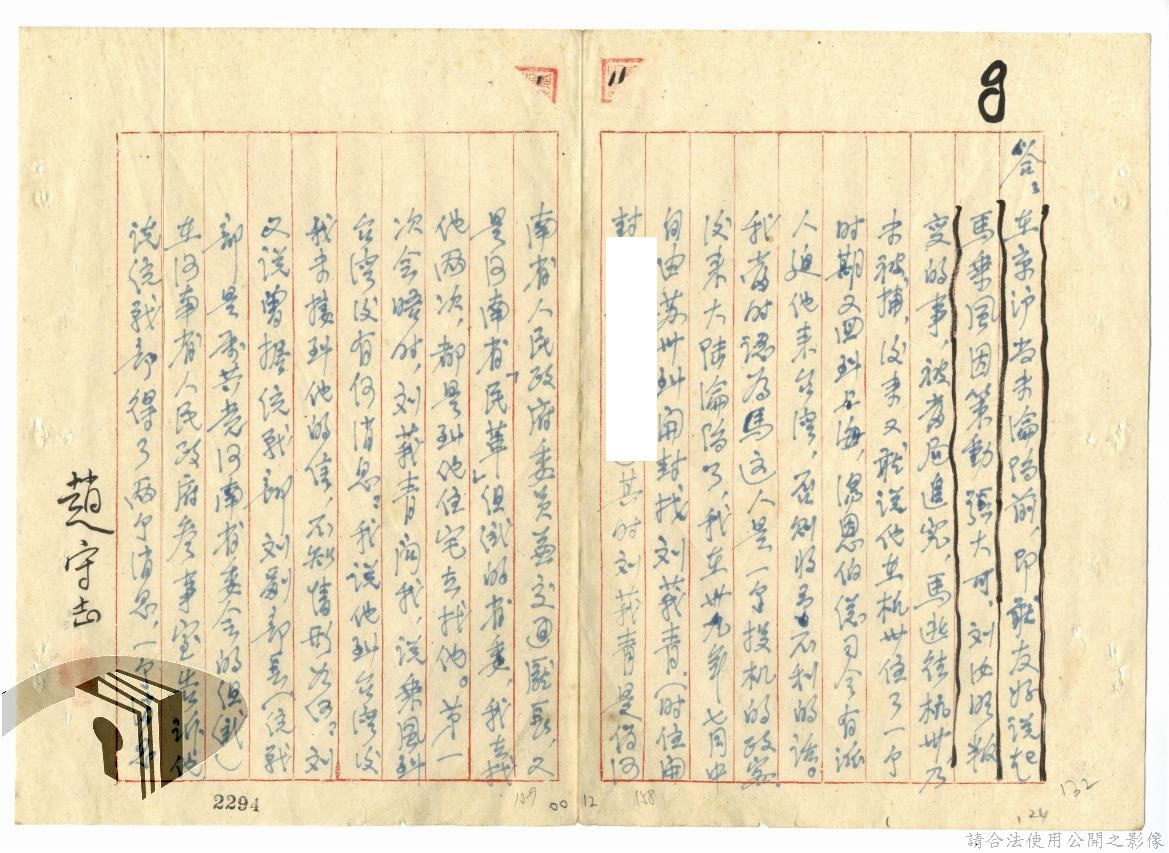 9
11
答:
在京沪尚未淪陷前,即聽友好說起
馬乘風因策動張大可、刘汝明叛
变的事,被當局追究,馬逃往杭州乃
未被捕,後来又聽说他在杭州住了一个
时期又回到上海,湯恩伯總司令有派
人迫他来台湾,否則将予不利的話。
我當时認為馬这人是一个投机的政客
後来大陆淪陷了,我在卅九年七月中
自由苏州到開封找刘莪青(时住開
封
其时刘莪青是偽河
南省人民政府委员兼交通廳長,又
是河南省「民革」组織的省委,我去找
他两次,都是到他住宅去找他。第一
次会晤时,刘莪青问我,说乘風到
台湾後有何消息?我说他到台湾後
我未接到他的信,不知情形如何?刘
又说曾据统战部刘副部長(统战
部是屬共党河南省委会的组織)
在河南省人民政府参事室告訴他
说统战部得了两个消息,一个
趙守志
2294
129
00
12
158
24
132
請合法使用公開之影像